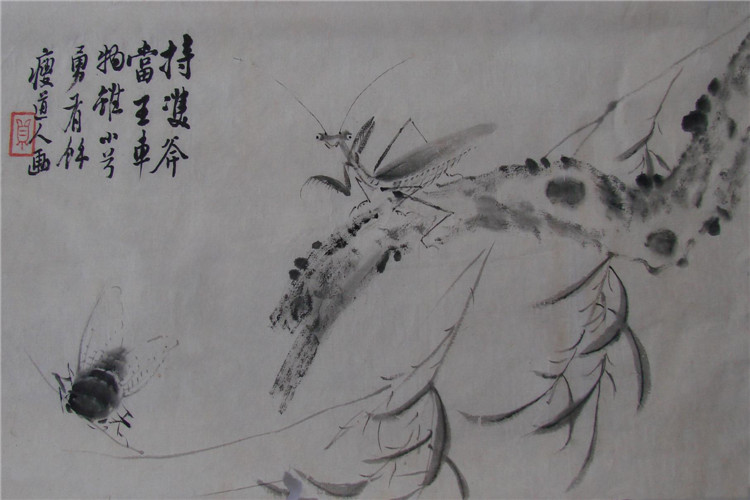 持雙斧
當王車
物雖小兮
勇有餘
瘦道人画